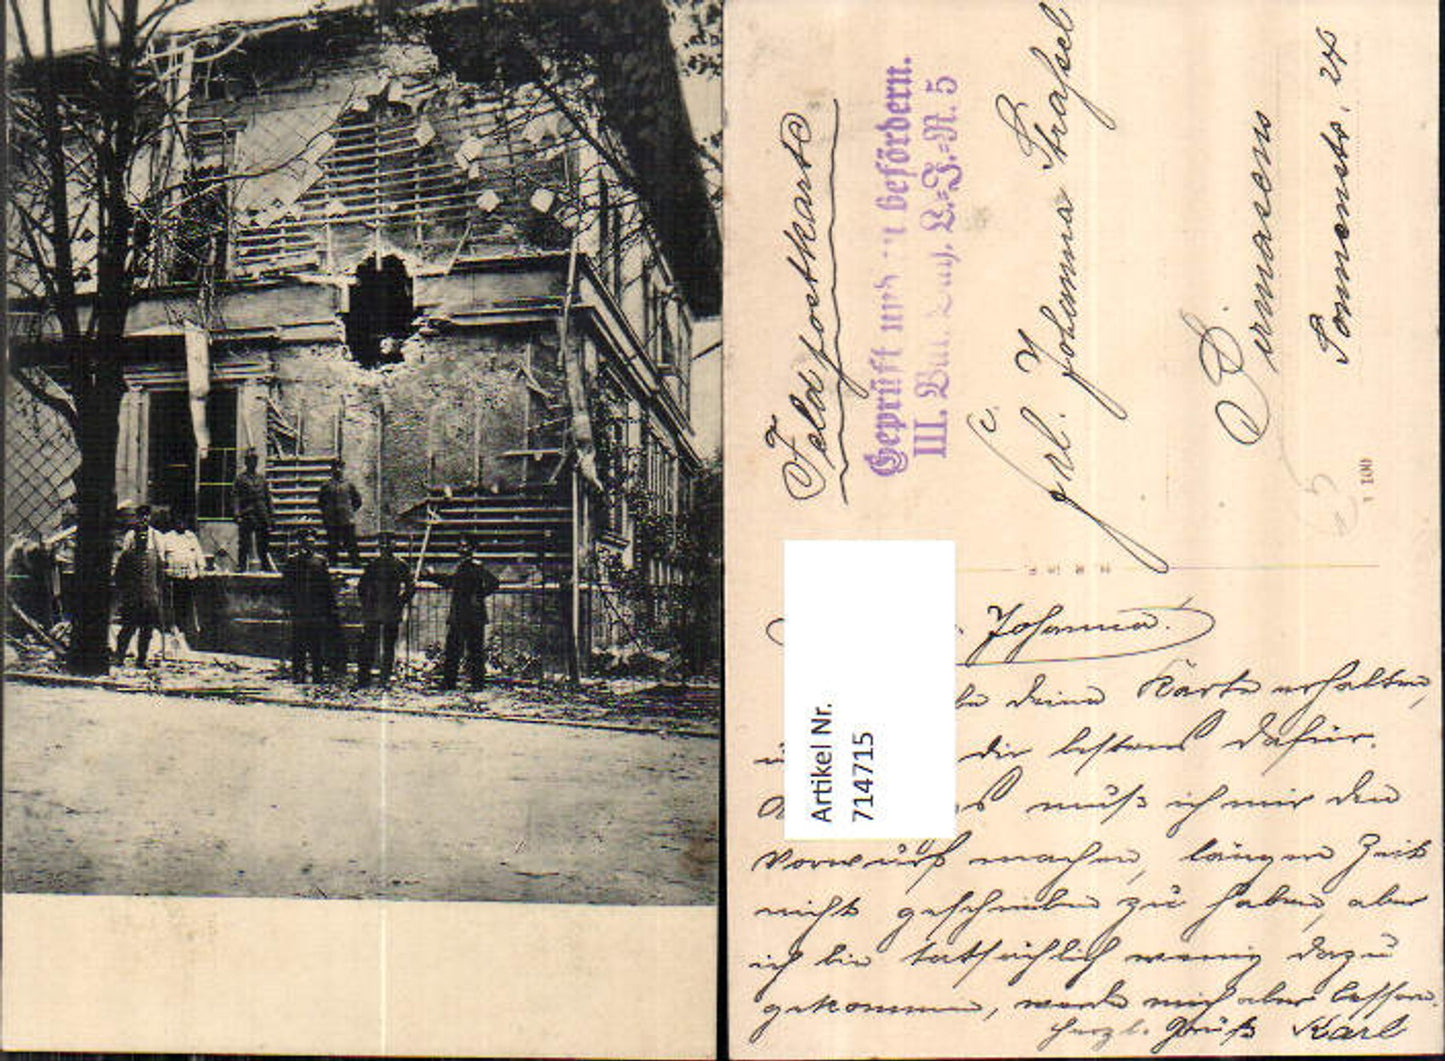 Feldpostkarte
Geprüft und zu befördern.
III. Bat. L.=J.=R. 5
Frl. Johanna Strassel
Pirmasens
Sonnenstr. 24
100
Artikel Nr.
714715
Johanna!
deine Karte erhalten,
dir bestens dafür.
muß ich mir den
Vorwurf machen, längere Zeit
nicht geschrieben zu haben, aber
ich bin tatsächlich wenig dazu
gekommen, werde mich aber bessern.
herzl. Gruß Karl